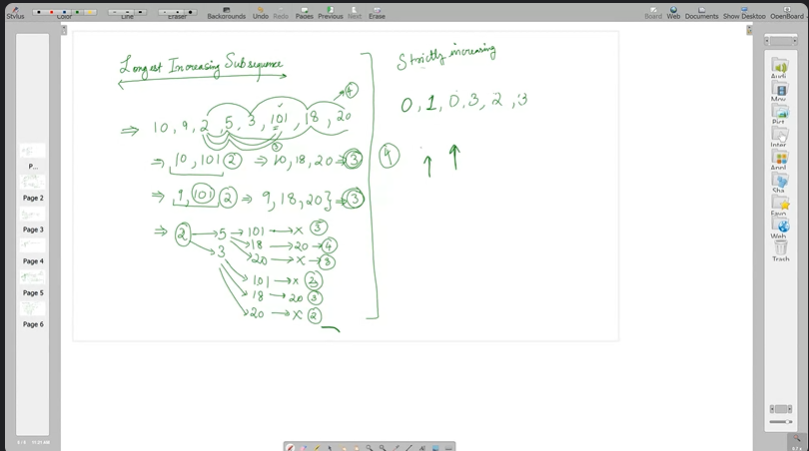 Stylus
Color
Line
Eraser
Backgrounds
Undo
Redo
Pages
Previous
Next
Erase
Board
Web
Documents
Show Desktop
OpenBoard
P...
Page 2
Page 3
Page 4
Page 5
Page 6
Longest Increasing Subsequence
4
⇒ 10, 9, 2, 5, 3, 101, 18, 20
⇒ 10, 101 2 ⇒ 10, 18, 20 → 3
⇒ 9, 101 2 ⇒ 9, 18, 20} → 3
⇒ 2 → 5 → 101 → x 3
18 → 20 → 4
3 20 → x → 3
101 → x
18 → 20 3
20 → x 2
Strictly increasing
0, 1, 0, 3, 2, 3
4 ↑ ↑
Audi
Mov
Pict
Inter
Appl
Sha
Favo
Web
Trash